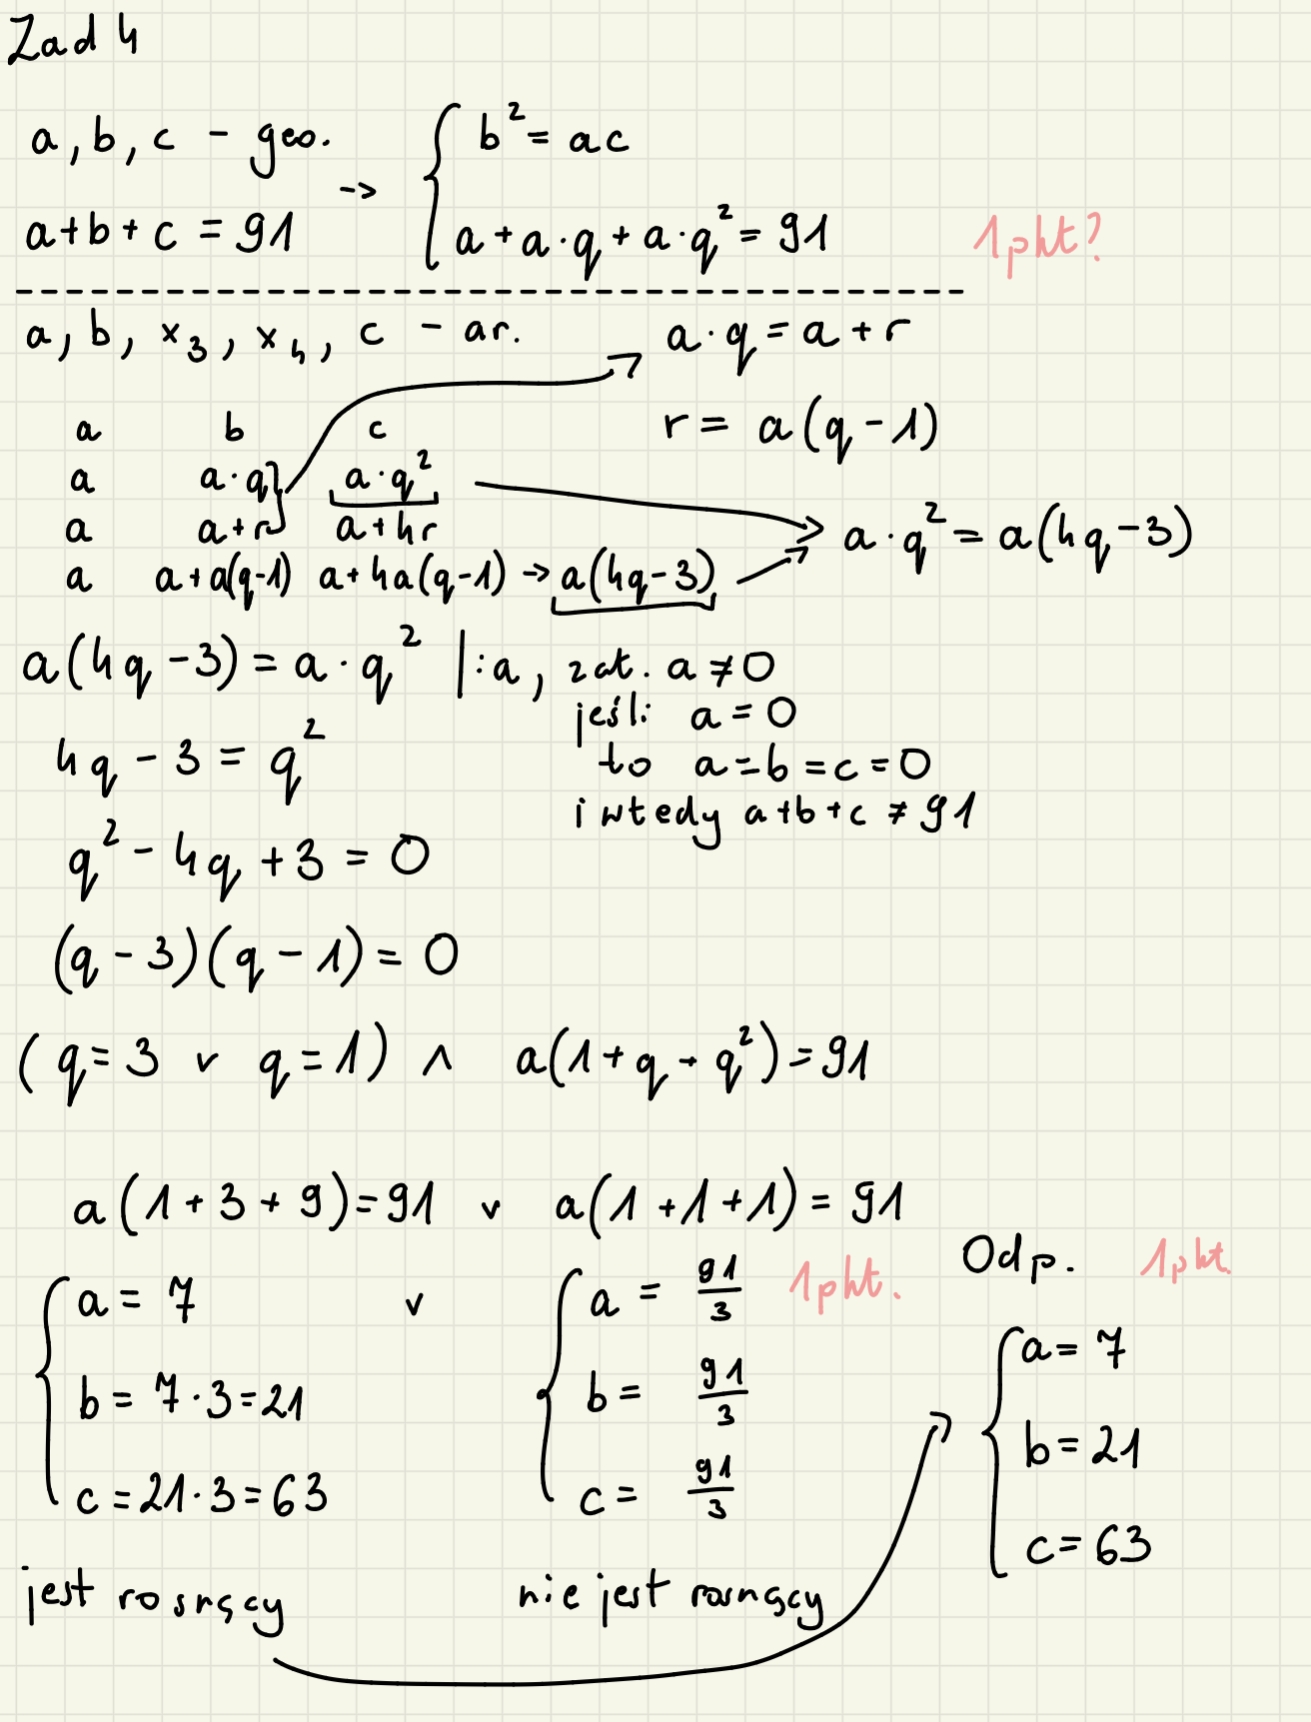 Zad 4
a, b, c - geo.
a+b+c = 91
->
b² = ac
a + a·q + a·q² = 91
1 pkt?
a, b, x₃, x₄, c - ar.
a·q = a + r
r = a(q-1)
a b c
a a·q a·q²
a a+r a+4r
a a+a(q-1) a+4a(q-1) → a(4q-3)
a·q² = a(4q-3)
a(4q-3) = a·q² |:a, zał. a≠0
jeśli a = 0
to a=b=c=0
i wtedy a+b+c ≠ 91
4q - 3 = q²
q² - 4q + 3 = 0
(q-3)(q-1) = 0
(q=3 ∨ q=1) ∧ a(1+q+q²)=91
a(1+3+9)=91 ∨ a(1+1+1) = 91
a = 7
b = 7·3=21
c = 21·3=63
jest rosnący
∨
a = 91/3
b = 91/3
c = 91/3
nie jest rosnący
1 pkt.
Odp. 1 pkt.
a = 7
b = 21
c = 63